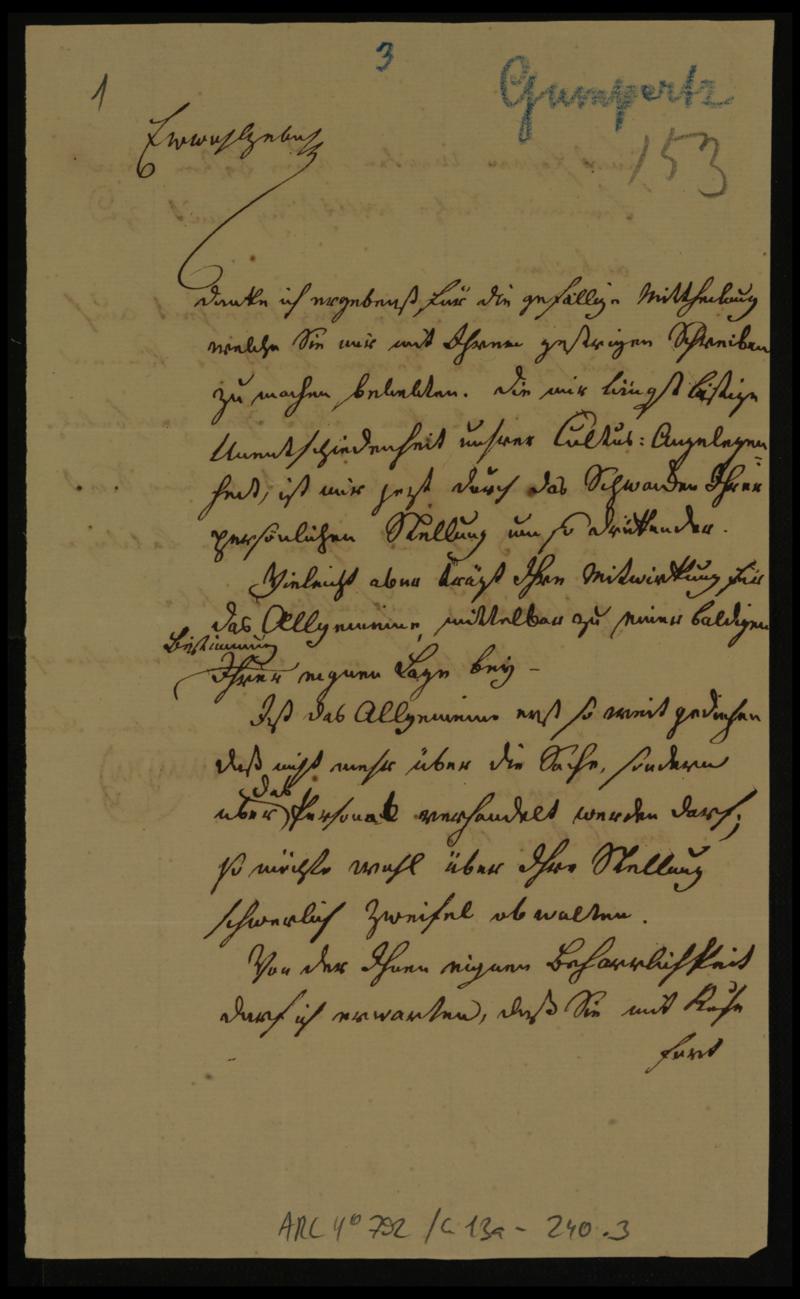 3
1
Gumpertz
153
Ewwohlgeb
danke ich ergebenst für die gefällige Mittheilung
welche Sie mir mit Ihrem gestrigen Schreiben
zu machen beliebten. Die mir längst lästige
Unentschiedenheit unsrer Cultus: Angelegen
heit, ist mir jezt durch das Schwanken Ihrer
persönlichen Stellung um so drükender.
Vieleicht aber trägt Ihre Mitwirkung für
das Allgemeine, mittelbar zu einer baldigen
Bestimmung
Ihrer eignen Lage bey –
Ist das Allgemeine erst so weit gediehen
daß nicht mehr über die Sache, sondern
das
über Personal verhandelt werden darf;
so möchte wohl über Ihre Stellung
schwerlich Zweifel obwalten.
Von der Ihnen eignen Beharrlichkeit
darf ich erwarten, daß Sie mit Ruhe
fort
ARC 4° 792 / C 13a - 240.3